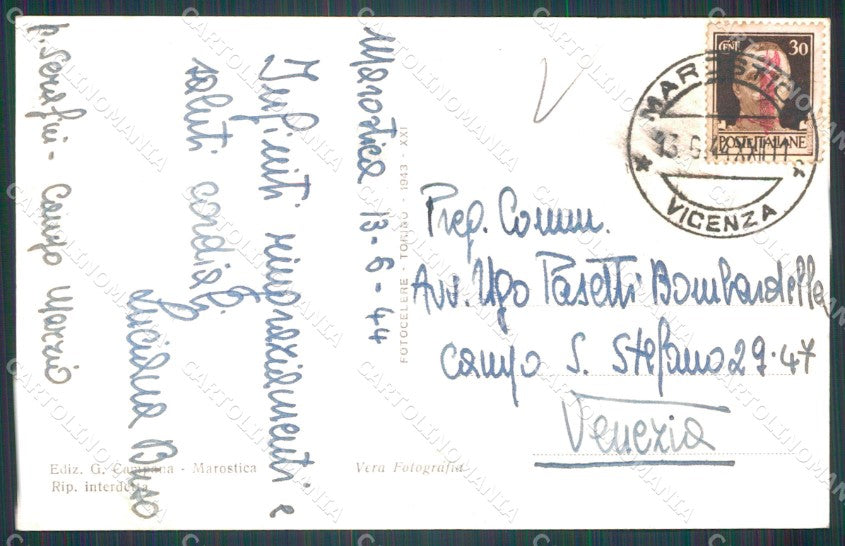 Marostica 13-6-44
Infiniti ringraziamenti e
saluti cordiali
Luciana Buso
p. Serafini - Campo Marzio
Ediz. G. Campana - Marostica
Rip. interdetta
Vera Fotografia
FOTOCELERE - TORINO - 1943 - XXI
CENT 30
POSTE ITALIANE
MAROSTICA
13.6.44 XXII
VICENZA
Preg. Comm.
Avv. Ugo Pasetti Bombardella
Campo S. Stefano 29.47
Venezia
CARTOLINOMANIA